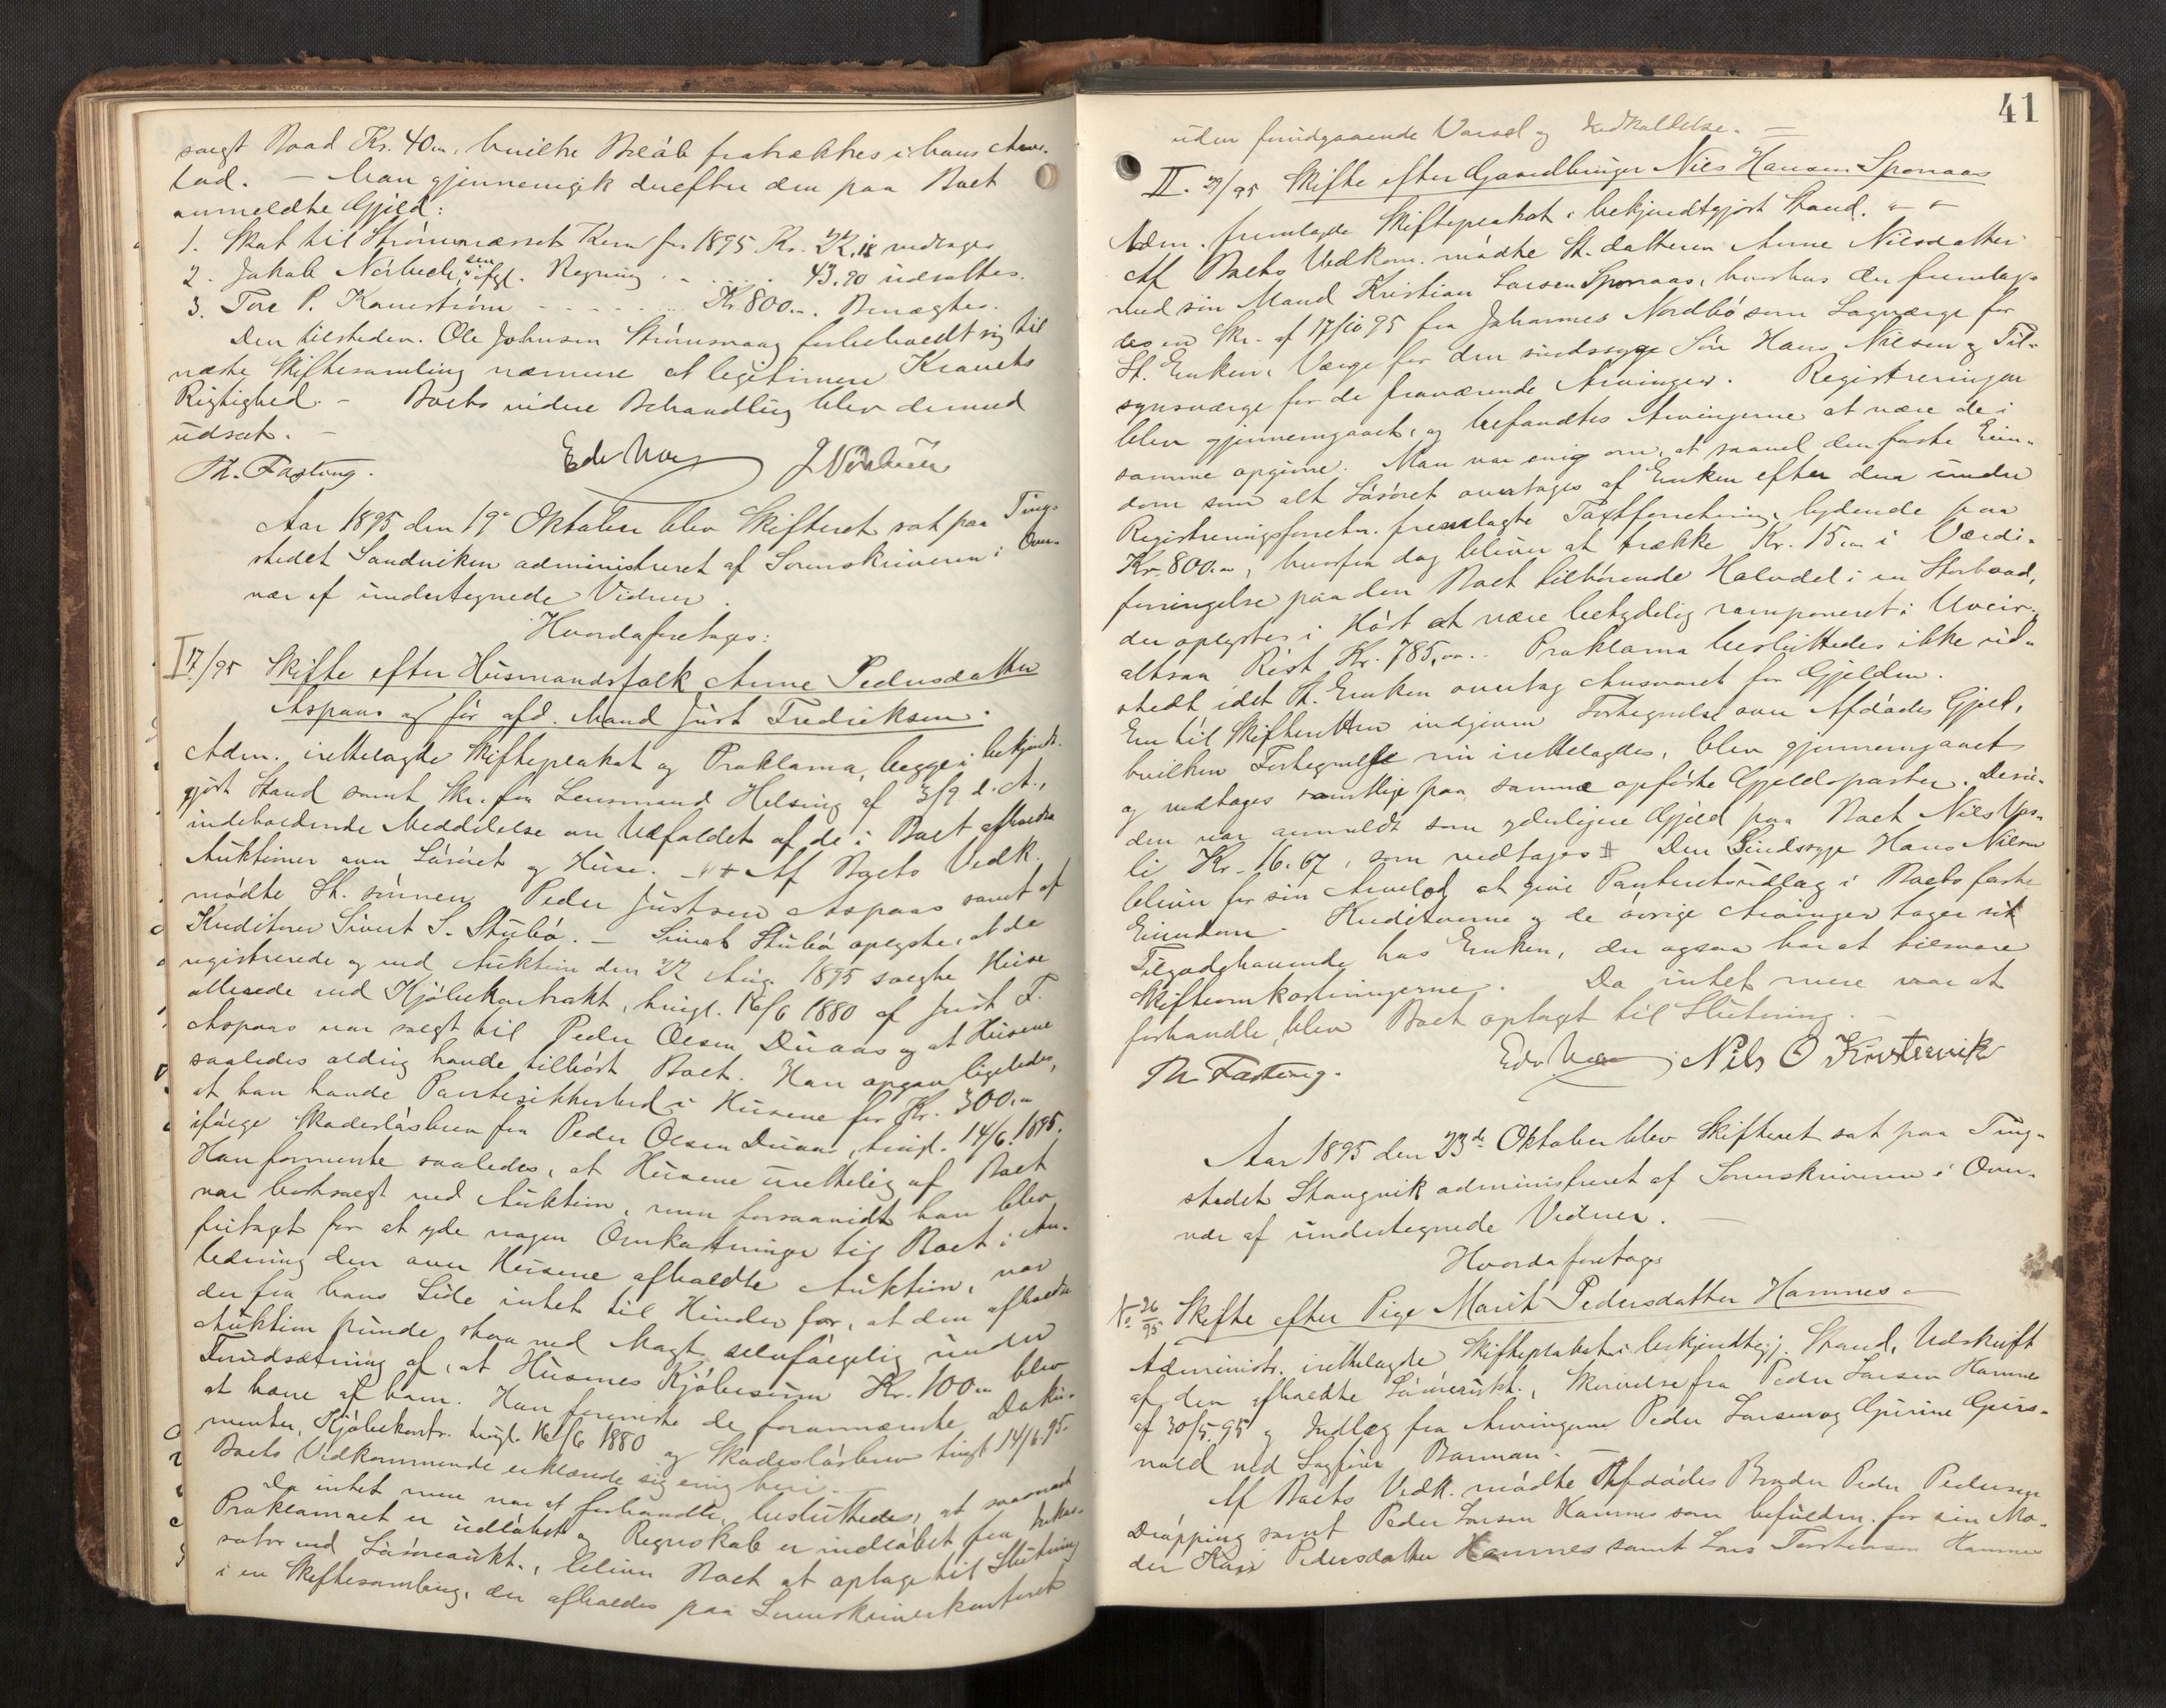 solgt Baad Kr. 40.00, hvilke Beløb fratrækkes i hans Arve-
lod. — Man gjennemgik derefter den paa Boet
anmeldte Gjeld:
1. Skat til Strømsnæsset Kom for 1895. Kr. 22.18 vedtages
2. Jakob Nerbech sen. ifgl. Regning . . . . 43.90 udsattes.
3. Tore P. Kanestrøm - - - - Kr. 800.00. Benægtes.
Den tilstedev. Ole Johnsen Strømsvaag forbeholdt sig til
næste Skiftesamling nærmere at legitimere Kravets
Rigtighed. - Boets videre Behandling blev dermed
udsat. —
Th. Fasting.
Aar 1895 den 19de Oktober blev Skifteret sat paa Ting-
stedet Sandviken administreret af Sorenskriveren i Over-
vær af undertegnede Vidner.
Hvorda foretages:
I 17/95 Skifte efter Husmandsfolk Anne Pedersdatter
Aspaas og før afd. Mand Just Fredriksen.
Adm. irettelagde Skifteplakat og Proklama, begge i bekjendt-
gjort Stand samt Skr. fra Lensmand Helsing af 3/9 d. A.,
indeholdende Meddelelse om Udfaldet af de i Boet afholdte
Auktioner over Løsøret og Huse. Af Boets Vedk.
mødte St. sønnen Peder Justsen Aspaas samt af
Kreditorer Sivert S. Stubø. — Sivert Stubø oplyste, at de
registrerede og ved Auktion den 22 Aug. 1895 solgte Huse
allerede ved Kjøbekontrakt, tingl. 16/6 1880 af Just F.
Aspaas var solgt til Peder Olsen Duaas og at Husene
saaledes aldrig havde tilhørt Boet. Han opgav ligeledes,
at han havde Pantesikkerhed i Husene for Kr. 300.00
ifølge Skadesløsbrev fra Peder Olsen Duaas, tingl. 14/6 1895.
Han formente saaledes, at Husene urettelig af Boet
var bortsolgt ved Auktion, men forsaavidt han blev
fritaget for at yde nogen Omkostninger til Boet i An-
ledning den over Husene afholdte Auktion, var
der fra hans Side intet til Hinder for, at den afholdte
Auktion kunde staa ved Magt selvfølgelig under
Forudsætning af, at Husenes Kjøbesum Kr. 100.00 blev
at hæve af ham. Han foreviste de forannævnte Doku-
menter, Kjøbekontr. tingl. 16/6 1880 og Skadesløsbrev tingl 14/6 95.
Boets Vedkommende erklærede sig enig heri. —
Da intet mere var at forhandle, besluttedes, at saasnart
Proklamaet er udløbet og Regnskab er indløbet fra Inkas-
sator ved Løsøreaukt., bliver Boet at optage til Slutning
i en Skiftesamling, der afholdes paa Sorenskriverkontoret
41
uden forudgaaende Varsel og Indkaldelse. —
II. 29/95 Skifte efter Gaardbruger Nils Hansen Sporaas
Adm. fremlagde Skifteplakat i bekjendtgjort Stand.
Af Boets Vedkom. mødte St. datteren Anne Nilsdatter
med sin Mand Kristian Larsen Sporaas, hvorhos der fremlag-
des en Skr. af 17/10 95 fra Johannes Nordbø som Lagværge for
St. Enken, Værge for den sindssyge Søn Hans Nilsen og Til-
synsværge for de fraværende Arvinger. Registreringen
blev gjennemgaaet, og befandtes Arvingerne at være de i
samme opgivne. Man var enig om, at saavel den faste Eien-
dom som alt Løsøret overtages af Enken efter den under
Registreringsforretn. fremlagte Taxtforretning, lydende paa
Kr. 800.00, hvorfra dog bliver at trække Kr. 15.00 i Værdi-
forringelse paa den Boet tilhørende Halvdel i en Storbaad,
der oplystes i Høst at være betydelig ramponeret i Uveir.
altsaa Rest Kr. 785,00. Proklama besluttedes ikke ud-
stedt idet St. Enken overtog Ansvaret for Gjelden.
En til Skifteretten indgiven Fortegnelse over Afdødes Gjeld,
hvilken Fortegnelse nu irettelagdes, blev gjennemgaaet
og vedtages samtlige paa samme opførte Gjeldsposter. Desu-
den var anmeldt som yderligere Gjeld paa Boet Nils Ups-
li Kr. 16.67, som vedtages Den Sindssyge Hans Nilsen
bliver for sin Arvelod at give Panteretsudlæg i Boets faste
Eiendom. Kreditorerne og de øvrige Arvinger tager sit
Tilgodehavende hos Enken, der ogsaa har at tilsvare
Skifteomkostningerne. Da intet mere var at
forhandle, blev Boet optaget til Slutning. —
Th Fasting.
Aar 1895 den 23de Oktober blev Skifteret sat paa Ting-
stedet Stangvik administreret af Sorenskriveren i Over-
vær af undertegnede Vidner. —
Hvorda foretages
No 26/95. Skifte efter Pige Marit Pedersdatter Hamnes
Administr. irettelagde Skifteplakat i bekjendtgj. Stand, Udskrift
af den afholdte Løsøreaukt., Skrivelse fra Peder Larsen Hamnes
af 30/5 95 og Indlæg fra Arvingerne Peder Larsen og Gurine Gurs-
vold ved Sagfører Barman.
Af Boets Vedk. mødte Afdødes Broder Peder Pedersen
Drøpping samt Peder Larsen Hamnes som befuldm. for sin Mo-
der Kari Pedersdatter Hamnes samt Lars Torstensen Hamnes